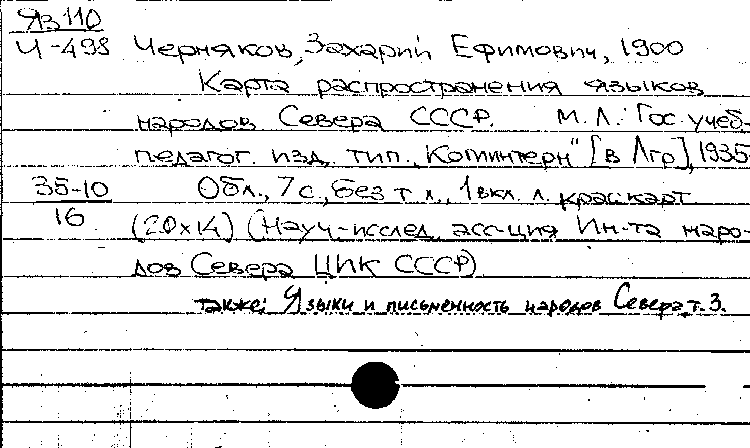 Яз 110
Ч-498 Черняков, Захарий Ефимович, 1900
Карта распространения языков
народов Севера СССР. М.Л. Гос. учеб-
педагог. изд. тип. „Коминтерн" [в Лгр], 1935
35-10 Обл., 7 с., без т. л., 1 вкл. л. краск. карт
16 (20х14) (Науч-исслед. асс-ция Ин-та наро-
дов Севера ЦИК СССР)
также: Языки и письменность народов Севера, т. 3.